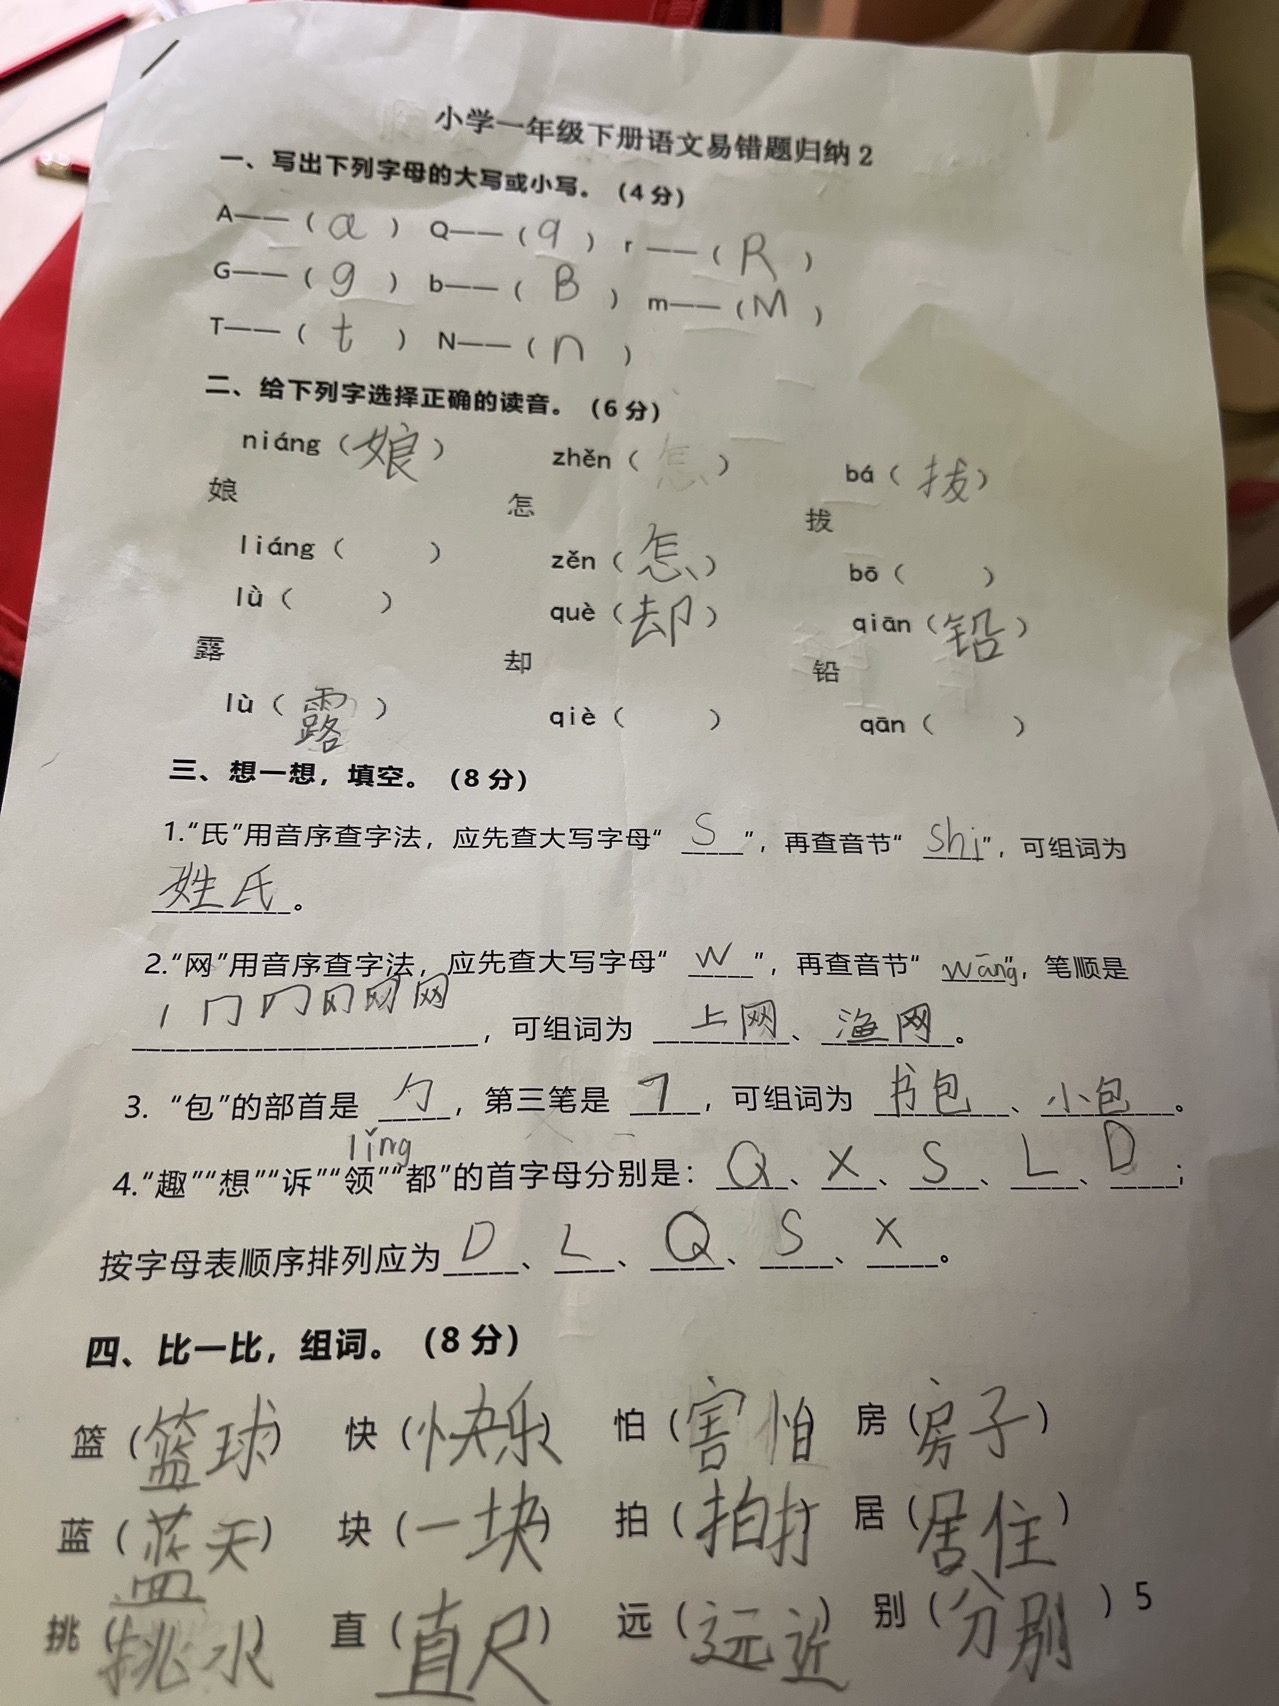 小学一年级下册语文易错题归纳2
一、写出下列字母的大写或小写。（4分）
A——（ a ） Q——（ q ） r——（ R ）
G——（ g ） b——（ B ） m——（ M ）
T——（ t ） N——（ n ）
二、给下列字选择正确的读音。（6分）
niáng（娘） zhěn（怎） bá（拔）
娘 怎 拔
liáng（ ） zěn（怎） bō（ ）
lù（ ） què（却） qiān（铅）
露 却 铅
lù（露） qiè（ ） qān（ ）
三、想一想，填空。（8分）
1.“氏”用音序查字法，应先查大写字母“ S ”，再查音节“ shi ”，可组词为
姓氏。
2.“网”用音序查字法，应先查大写字母“ W ”，再查音节“ wāng ”，笔顺是
丨 冂 网，可组词为 上网、渔网。
3. “包”的部首是 勹，第三笔是 ㇕，可组词为 书包、小包。
lǐng
4.“趣”“想”“诉”“领”“都”的首字母分别是：Q、X、S、L、D；
按字母表顺序排列应为 D、L、Q、S、X。
四、比一比，组词。（8分）
篮（篮球） 快（快乐） 怕（害怕） 房（房子）
蓝（蓝天） 块（一块） 拍（拍打） 居（居住）
挑（挑水） 直（直尺） 远（远近） 别（分别）5